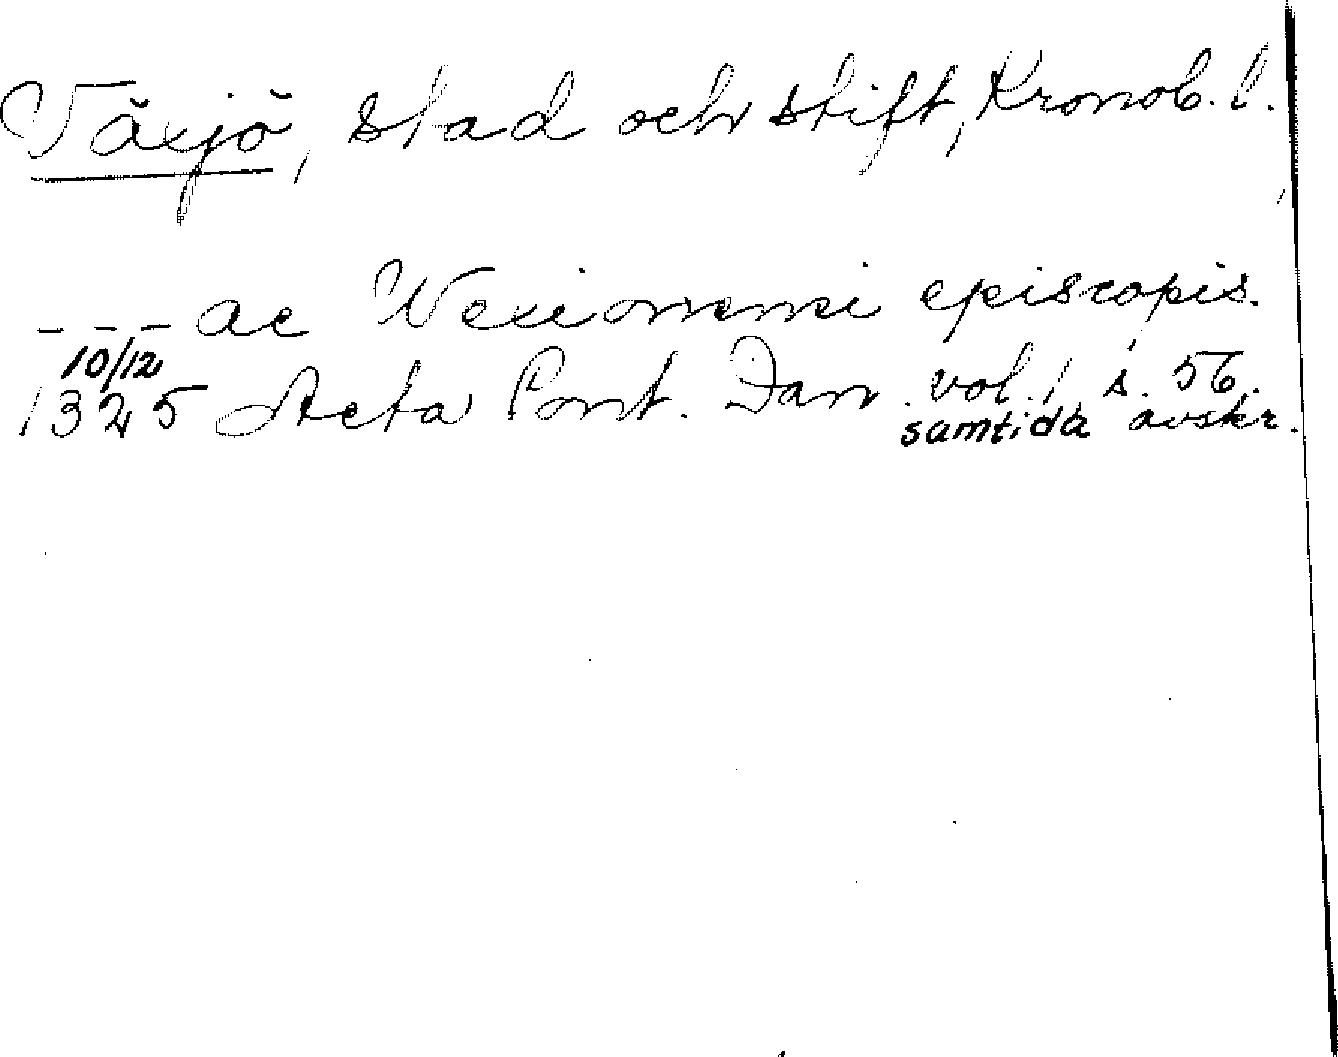 Växjö, stad och stift, Kronob. l.
- - - ac Wexionensi episcopis.
10/12
1325 Acta Pont. Dan. vol. 1, s. 56.
samtida avskr.